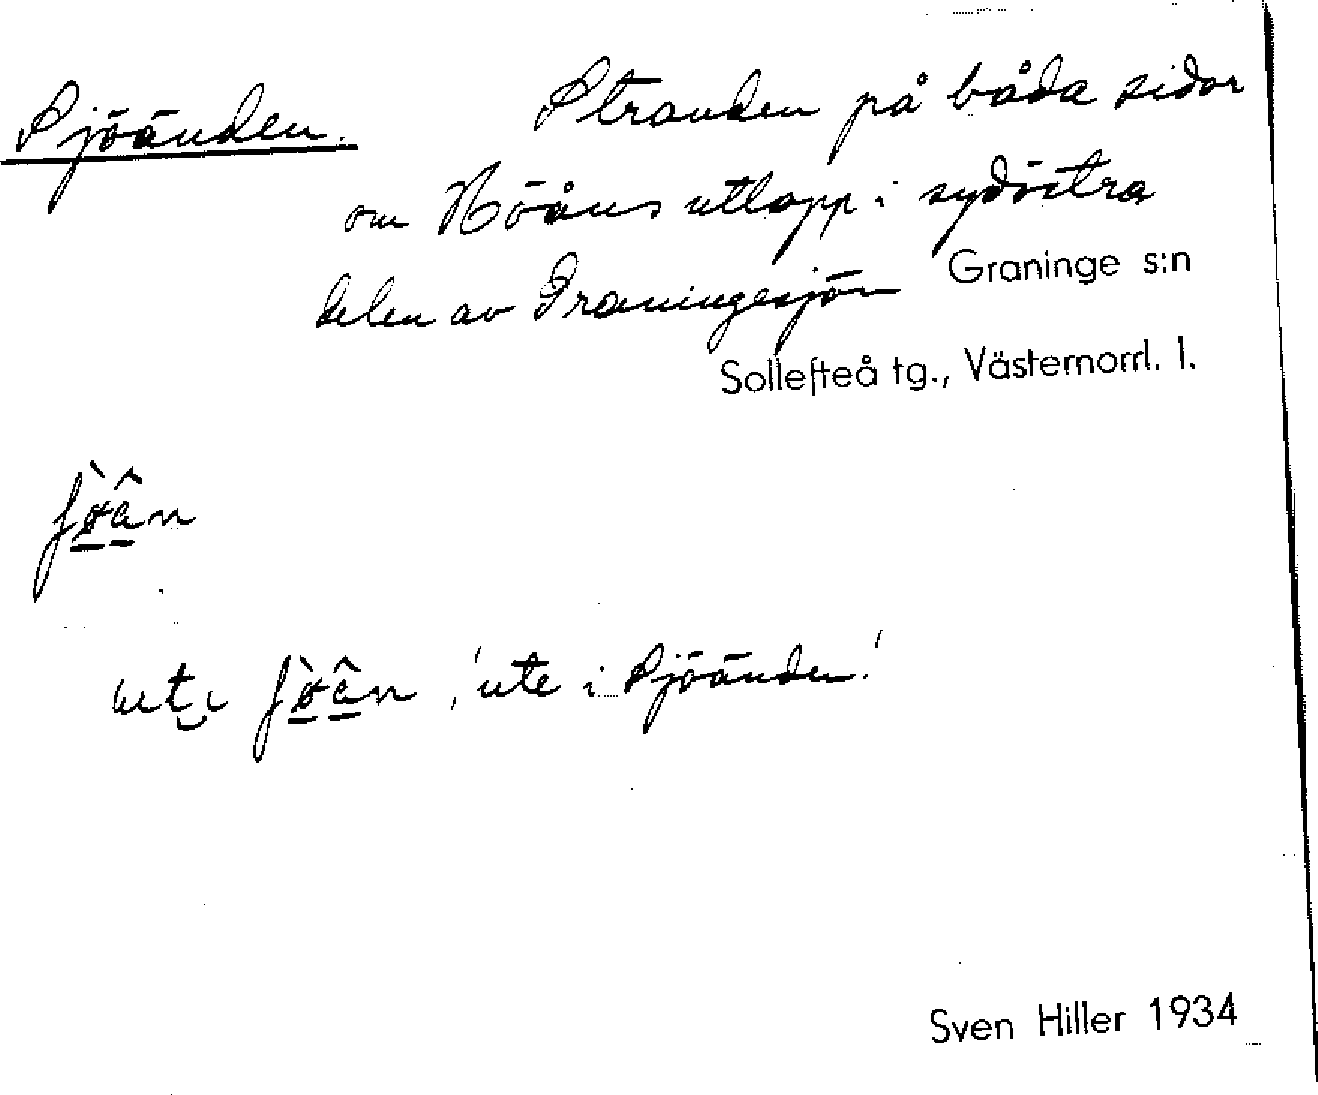 Sjöänden. Stranden på båda sidor
om Höåns utlopp i sydöstra
delen av Graningesjön Graninge s:n
Sollefteå tg., Västernorrl. l.
ʃö̀ân
ute ʃö̀ân, 'ute i Sjöänden.'
Sven Hiller 1934